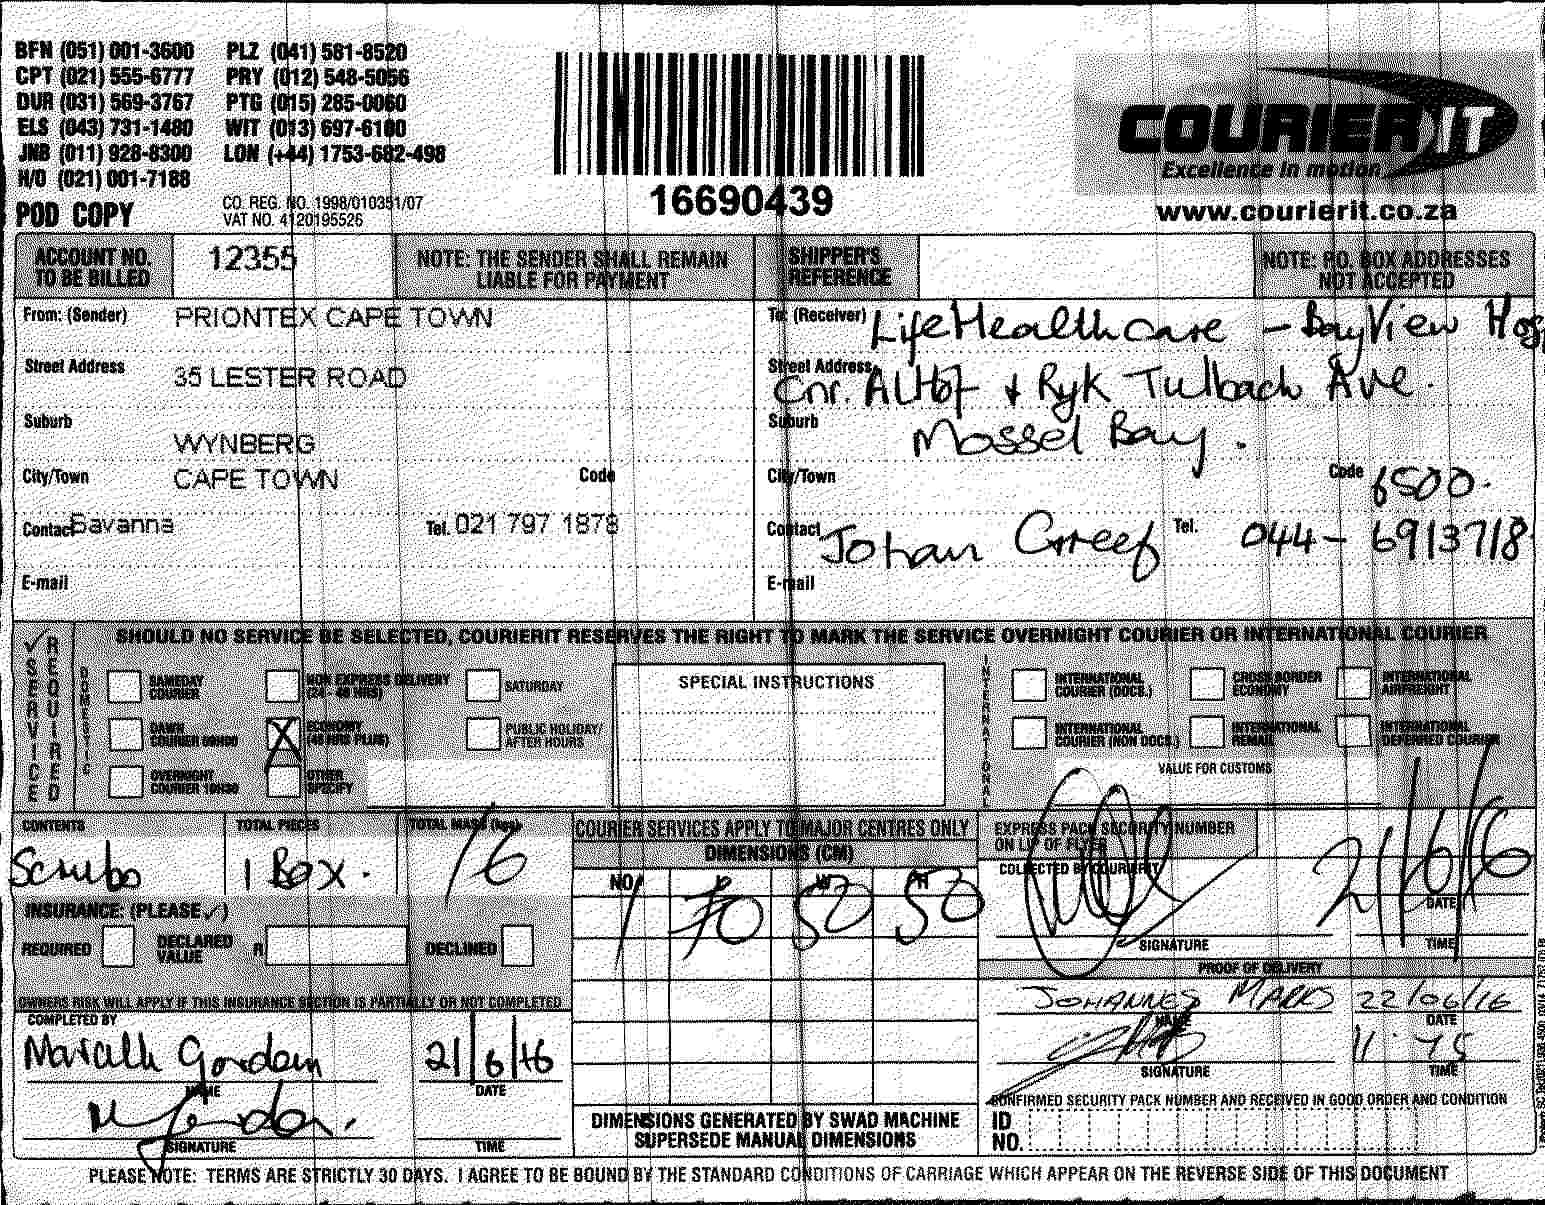 BFN (051) 001-3600 PLZ (041) 581-8520
CPT (021) 555-6777 PRY (012) 548-5056
DUR (031) 569-3767 PTG (015) 285-0060
ELS (043) 731-1480 WIT (013) 697-6100
JNB (011) 928-8300 LON (+44) 1753-682-498
H/O (021) 001-7188
POD COPY
CO. REG. NO. 1998/010351/07
VAT NO. 4120195526
16690439
COURIER IT
Excellence in motion
www.courierit.co.za
ACCOUNT NO. TO BE BILLED 12355
NOTE: THE SENDER SHALL REMAIN LIABLE FOR PAYMENT
SHIPPER'S REFERENCE
NOTE: P.O. BOX ADDRESSES NOT ACCEPTED
From: (Sender) PRIONTEX CAPE TOWN
Street Address 35 LESTER ROAD
Suburb WYNBERG
City/Town CAPE TOWN Code
Contact Savanna Tel. 021 797 1878
E-mail
To: (Receiver) Life Healthcare - BayView Hosp
Street Address Cnr. Alhof + Ryk Tulbach Ave.
Suburb Mossel Bay.
City/Town Code 6500.
Contact Johan Greef Tel. 044-6913718
E-mail
✓ SERVICE REQUIRED
SHOULD NO SERVICE BE SELECTED, COURIERIT RESERVES THE RIGHT TO MARK THE SERVICE OVERNIGHT COURIER OR INTERNATIONAL COURIER
DOMESTIC
SAMEDAY COURIER
NON EXPRESS DELIVERY (24 - 48 HRS)
SATURDAY
DAWN COURIER 09H00
X ECONOMY (48 HRS PLUS)
PUBLIC HOLIDAY/ AFTER HOURS
OVERNIGHT COURIER 10H30
OTHER SPECIFY
SPECIAL INSTRUCTIONS
INTERNATIONAL
INTERNATIONAL COURIER (DOCS.)
CROSS BORDER ECONOMY
INTERNATIONAL AIRFREIGHT
INTERNATIONAL COURIER (NON DOCS.)
INTERNATIONAL REMAIL
INTERNATIONAL DEFERRED COURIER
VALUE FOR CUSTOMS
CONTENTS Scrubs
TOTAL PIECES 1 Box.
TOTAL MASS (kgs) 16
COURIER SERVICES APPLY TO MAJOR CENTRES ONLY
DIMENSIONS (CM)
NO L W H
1 70 50 50
DIMENSIONS GENERATED BY SWAD MACHINE SUPERSEDE MANUAL DIMENSIONS
EXPRESS PACK SECURITY NUMBER ON LIP OF FLYER
COLLECTED BY COURIERIT
SIGNATURE
21/6/16
DATE
TIME
INSURANCE: (PLEASE ✓)
REQUIRED DECLARED VALUE R DECLINED
OWNERS RISK WILL APPLY IF THIS INSURANCE SECTION IS PARTIALLY OR NOT COMPLETED
COMPLETED BY
Gordon
NAME
21/6/16
DATE
SIGNATURE
TIME
PROOF OF DELIVERY
JOHANNES MARKS 22/06/16
NAME DATE
11:45
SIGNATURE TIME
CONFIRMED SECURITY PACK NUMBER AND RECEIVED IN GOOD ORDER AND CONDITION
ID NO.
PLEASE NOTE: TERMS ARE STRICTLY 30 DAYS. I AGREE TO BE BOUND BY THE STANDARD CONDITIONS OF CARRIAGE WHICH APPEAR ON THE REVERSE SIDE OF THIS DOCUMENT